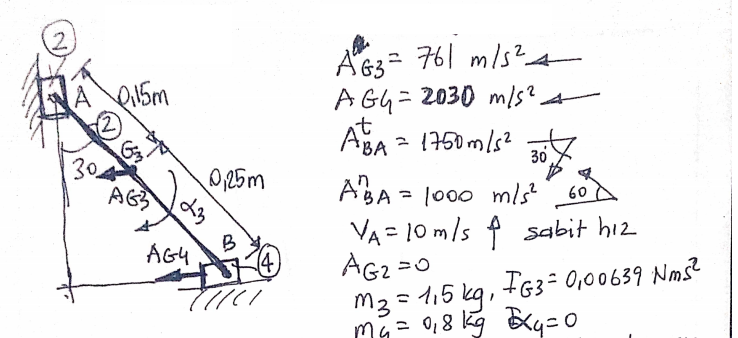 2
A
0,15m
2
G3
30
AG3
0,25m
α3
AG4
B
4
AG3 = 761 m/s² ←
AG4 = 2030 m/s² ←
AᵗBA = 1750 m/s² 30
AⁿBA = 1000 m/s² 60
VA = 10 m/s ↑ sabit hız
AG2 = 0
m3 = 1,5 kg, IG3 = 0,00639 Nms²
m4 = 0,8 kg α4 = 0